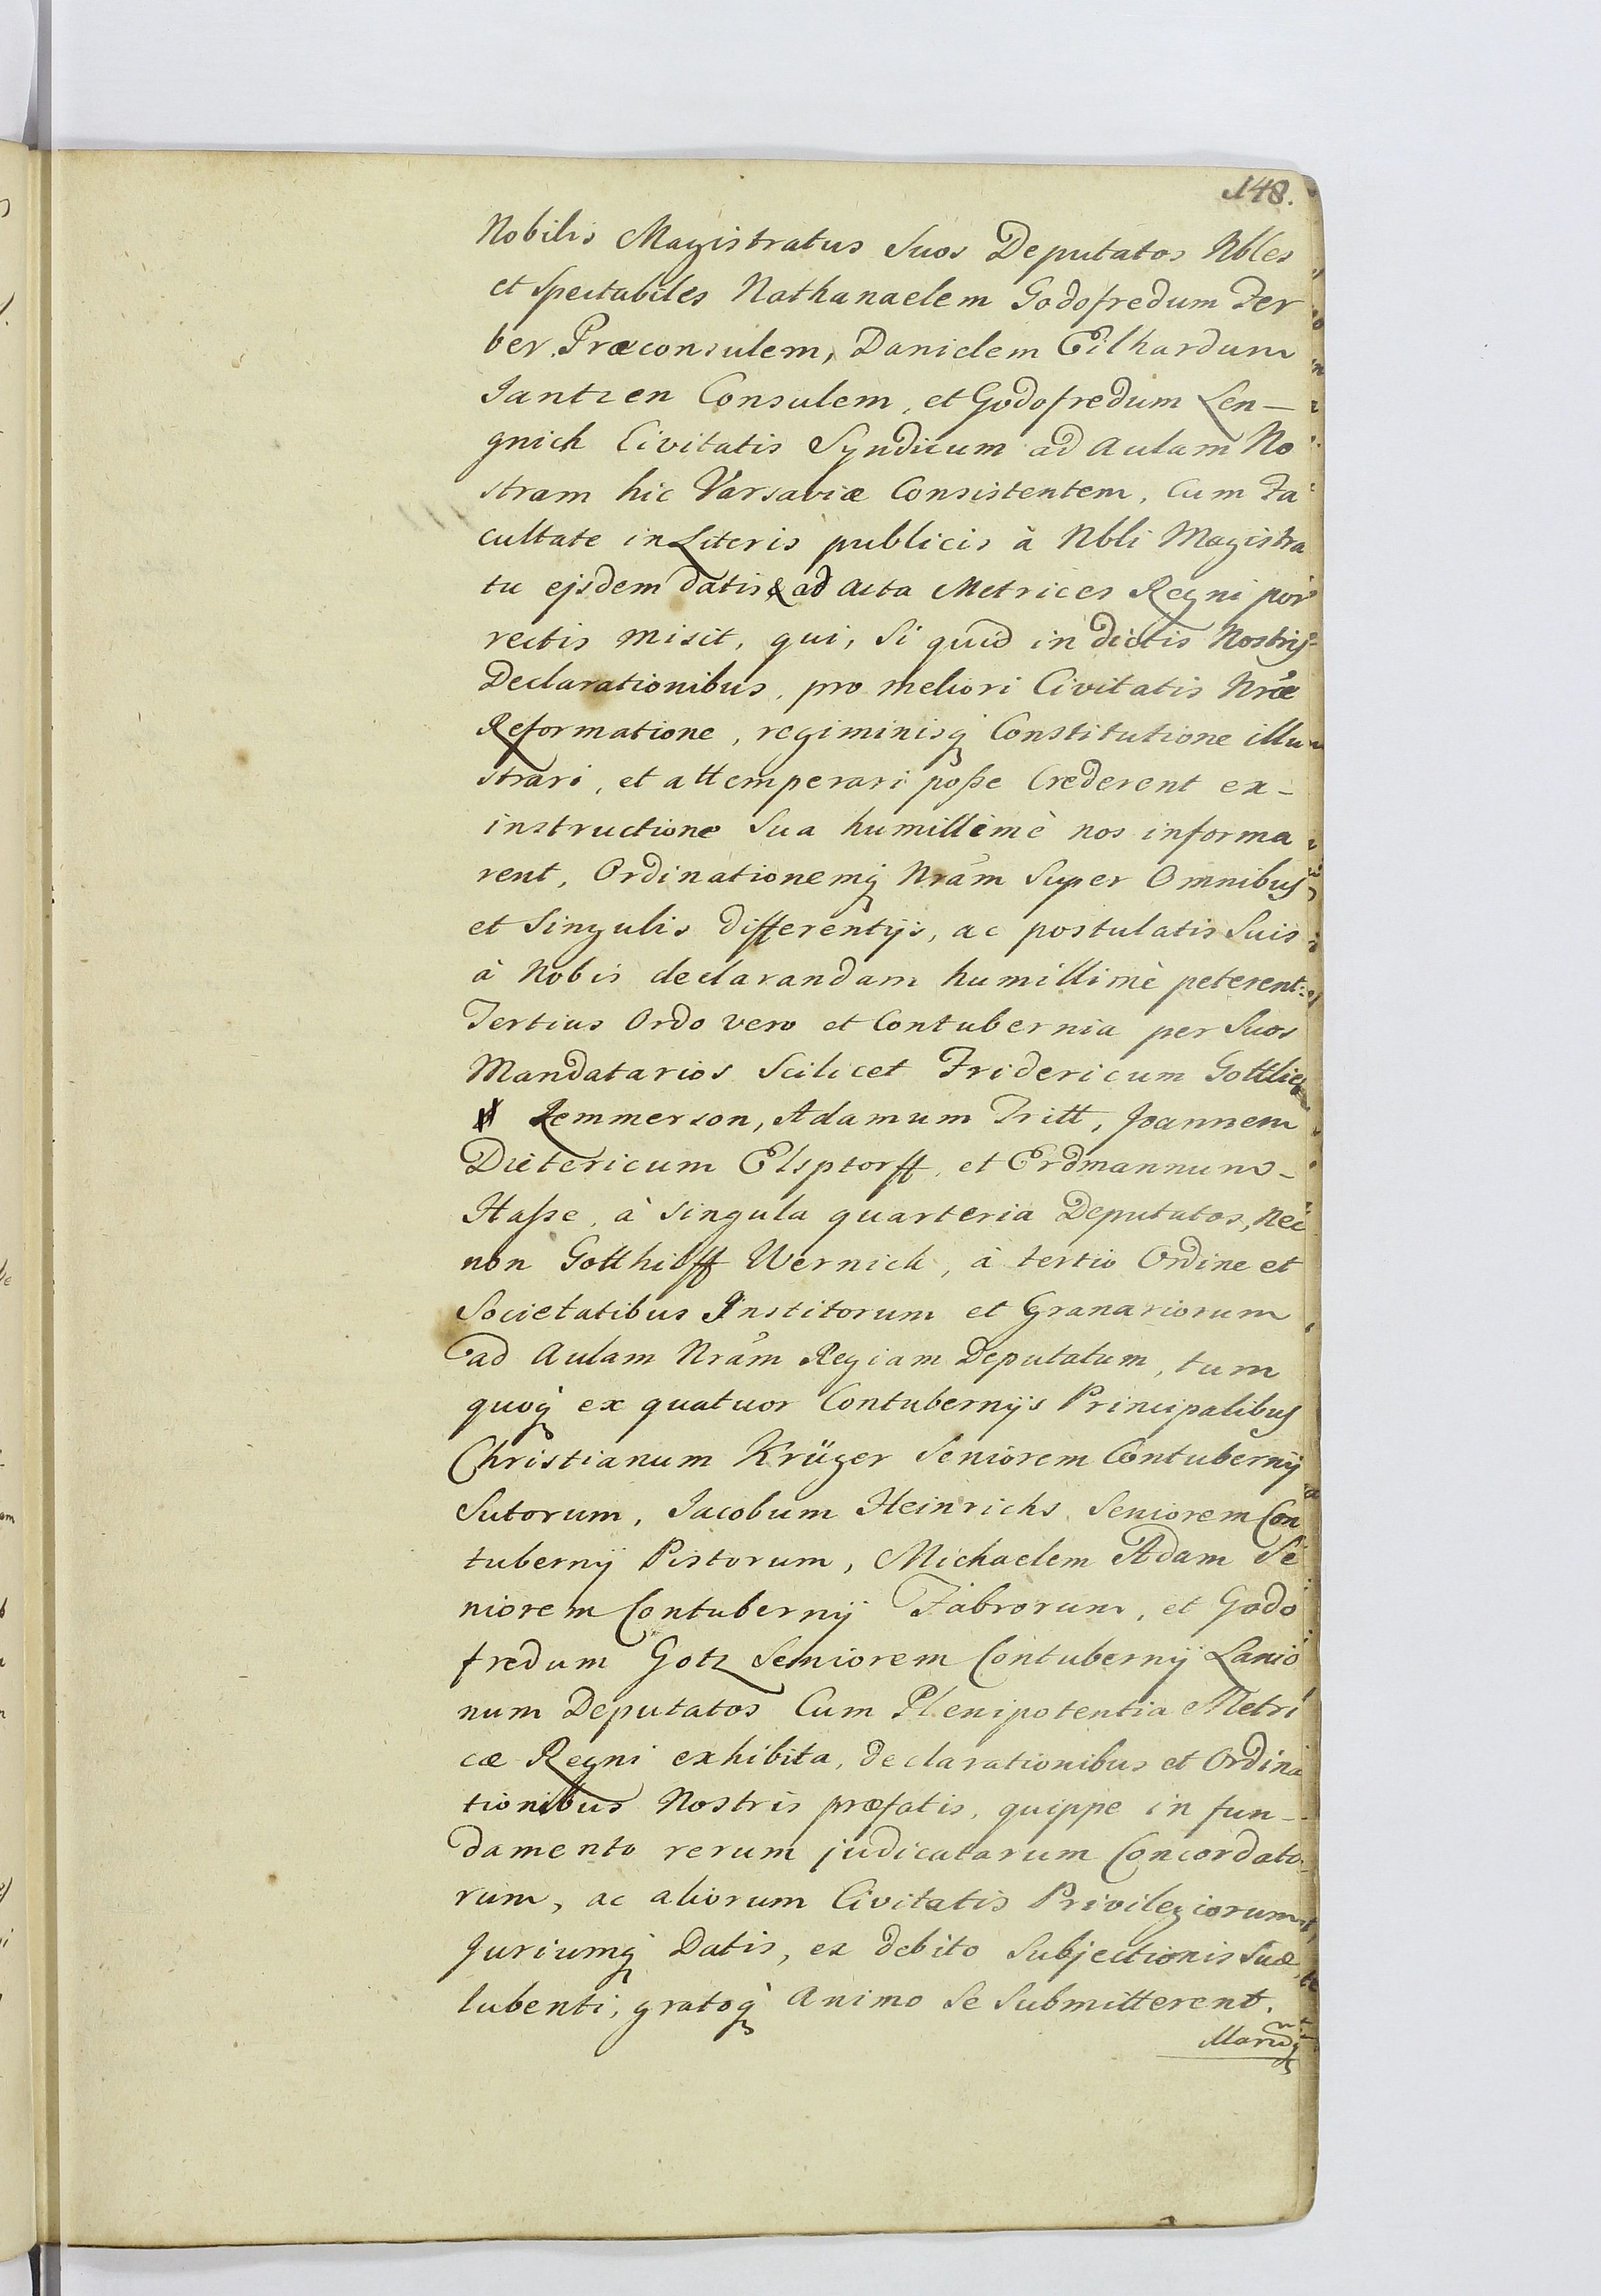 148.
Nobilis Magistratus Suos Deputatos Nbles
et Spectabiles Nathanaelem Godofredum Fer
ber, Præconsulem, Danielem Eilhardum
Jantzen Consulem, et Godofredum Len-
gnich Civitatis Syndicum ad Aulam No
stram hic Varsaviæ Consistentem, Cum Fa
cultate in Literis publicis à Nbli Magistra
tu ejsdem datis & ad Acta Metrices Regni por
rectis misit, qui, Si quid in dictis Nostris
Declarationibus, pro meliori Civitatis Nræ
Reformatione, regiminisq; Constitutione illu
strari, et attemperari poße Crederent ex-
instructione Sua humillimè nos informa
rent, Ordinationemq; Nram Super Omnibus
et Singulis differentijs, ac postulatis Suis
à Nobis declarandam humillimè peterent:
Tertius Ordo vero et Contubernia per Suos
Mandatarios Scilicet Fridericum Gottlieb
Lemmerson, Adamum Tritt, Joannem
Dietericum Elsptorff, et Erdmannum-
Haße, à Singula quarteria Deputatos, Nec
non Gotthilff Wernick, à tertio Ordine et
Societatibus Institorum et Granariorum
ad Aulam Nram Regiam Deputatum, tum
quoq; ex quatuor Contubernijs Principalibus
Christianum Krüger Seniorem Contubernij
Sutorum, Jacobum Heinrichs Seniorem Con
tubernij Pistorum, Michaelem Adam Se
niorem Contubernij Fabrorum, et Godo
fredum Gotz Seniorem Contubernij Lanio
num Deputatos Cum Plenipotentia Metri
cæ Regni exhibita, declarationibus et Ordina
tionibus Nostris præfatis, quippe in fun-
damento rerum judicatarum Concordato
rum, ac aliorum Civitatis Privilegiorum
Juriumq; Datis, ex debito Subjectionis Suæ
lubenti, gratoq; Animo Se Submitterent.